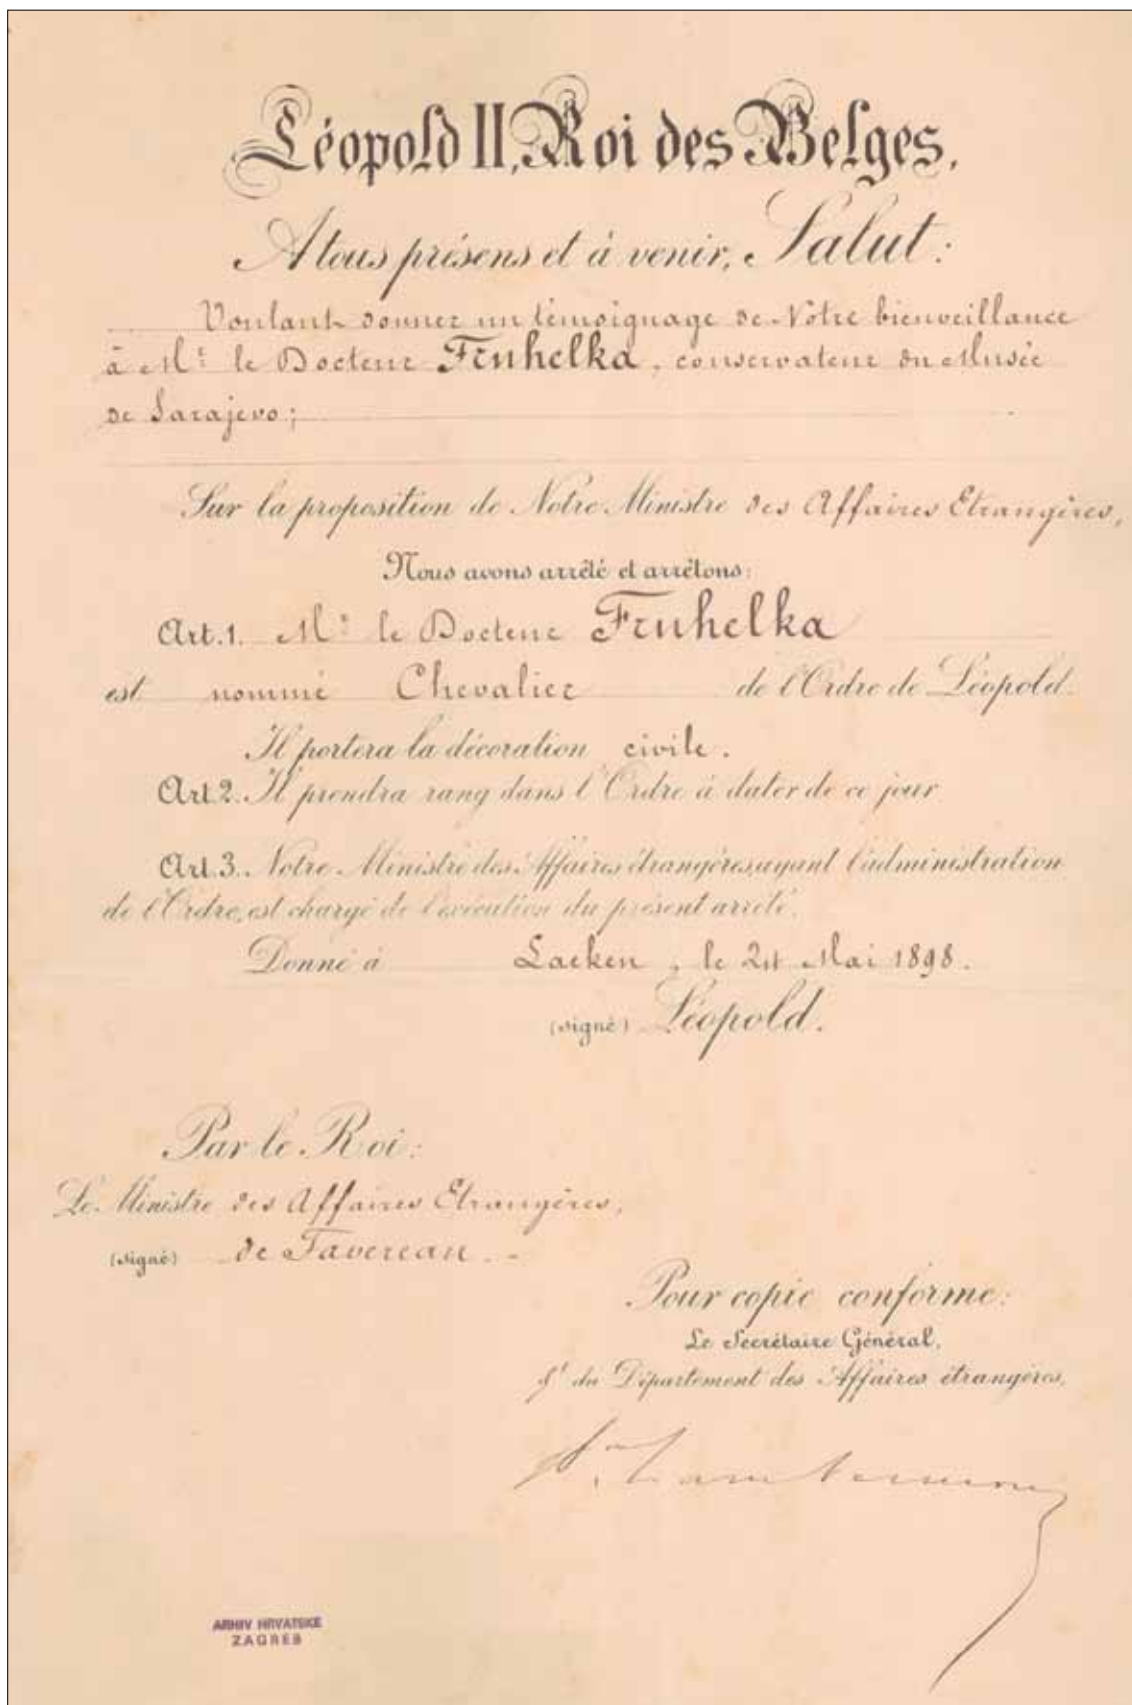 Léopold II, Roi des Belges,
A tous présens et à venir, Salut:
Voulant donner un témoignage de Notre bienveillance
à Mr le Docteur Fruhelka, conservateur du Musée
de Sarajevo;
Sur la proposition de Notre Ministre des Affaires Etrangères,
Nous avons arrêté et arrêtons:
Art. 1. Mr le Docteur Fruhelka
est nommé Chevalier de l'Ordre de Léopold.
Il portera la décoration civile.
Art 2. Il prendra rang dans l'Ordre à dater de ce jour
Art. 3. Notre Ministre des Affaires étrangères, ayant l'administration
de l'Ordre, est chargé de l'exécution du présent arrêté.
Donné à Laeken, le Mai 1898.
(signé) Léopold.
Par le Roi:
Le Ministre des Affaires Etrangères,
(signé) de Favereau.
Pour copie conforme:
Le Secrétaire Général,
du Département des Affaires étrangères,
ARHIV HRVATSKE
ZAGREB